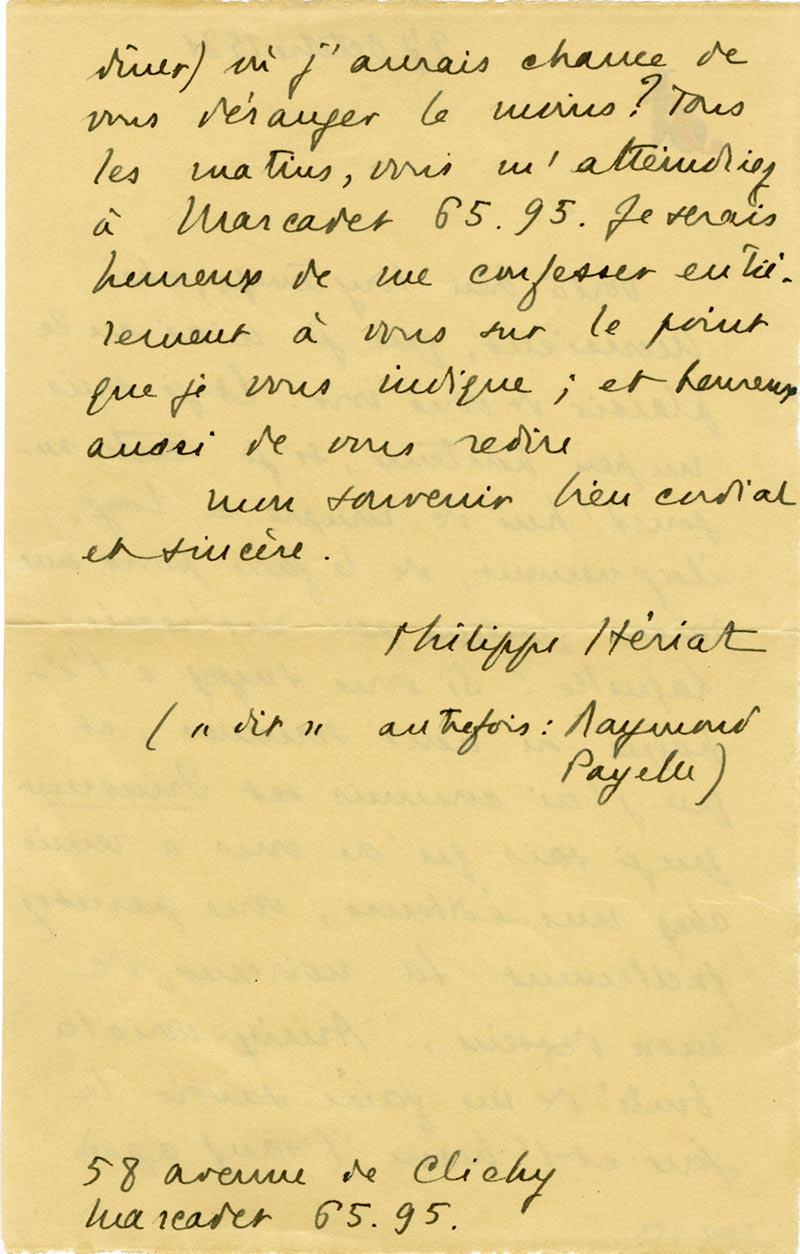 dîner) où j'aurais chance de
vous déranger le moins? Tous
les matins, vous m'atteindriez
à Marcadet 65.95. Je serais
heureux de me confesser entiè-
rement à vous sur le point
que je vous indique ; et heureux
aussi de vous redire
mon souvenir bien cordial
et sincère.
Philippe Hériat
( « dit » autrefois : Raymond
Payelle)
58 avenue de Clichy
Marcadet 65.95.